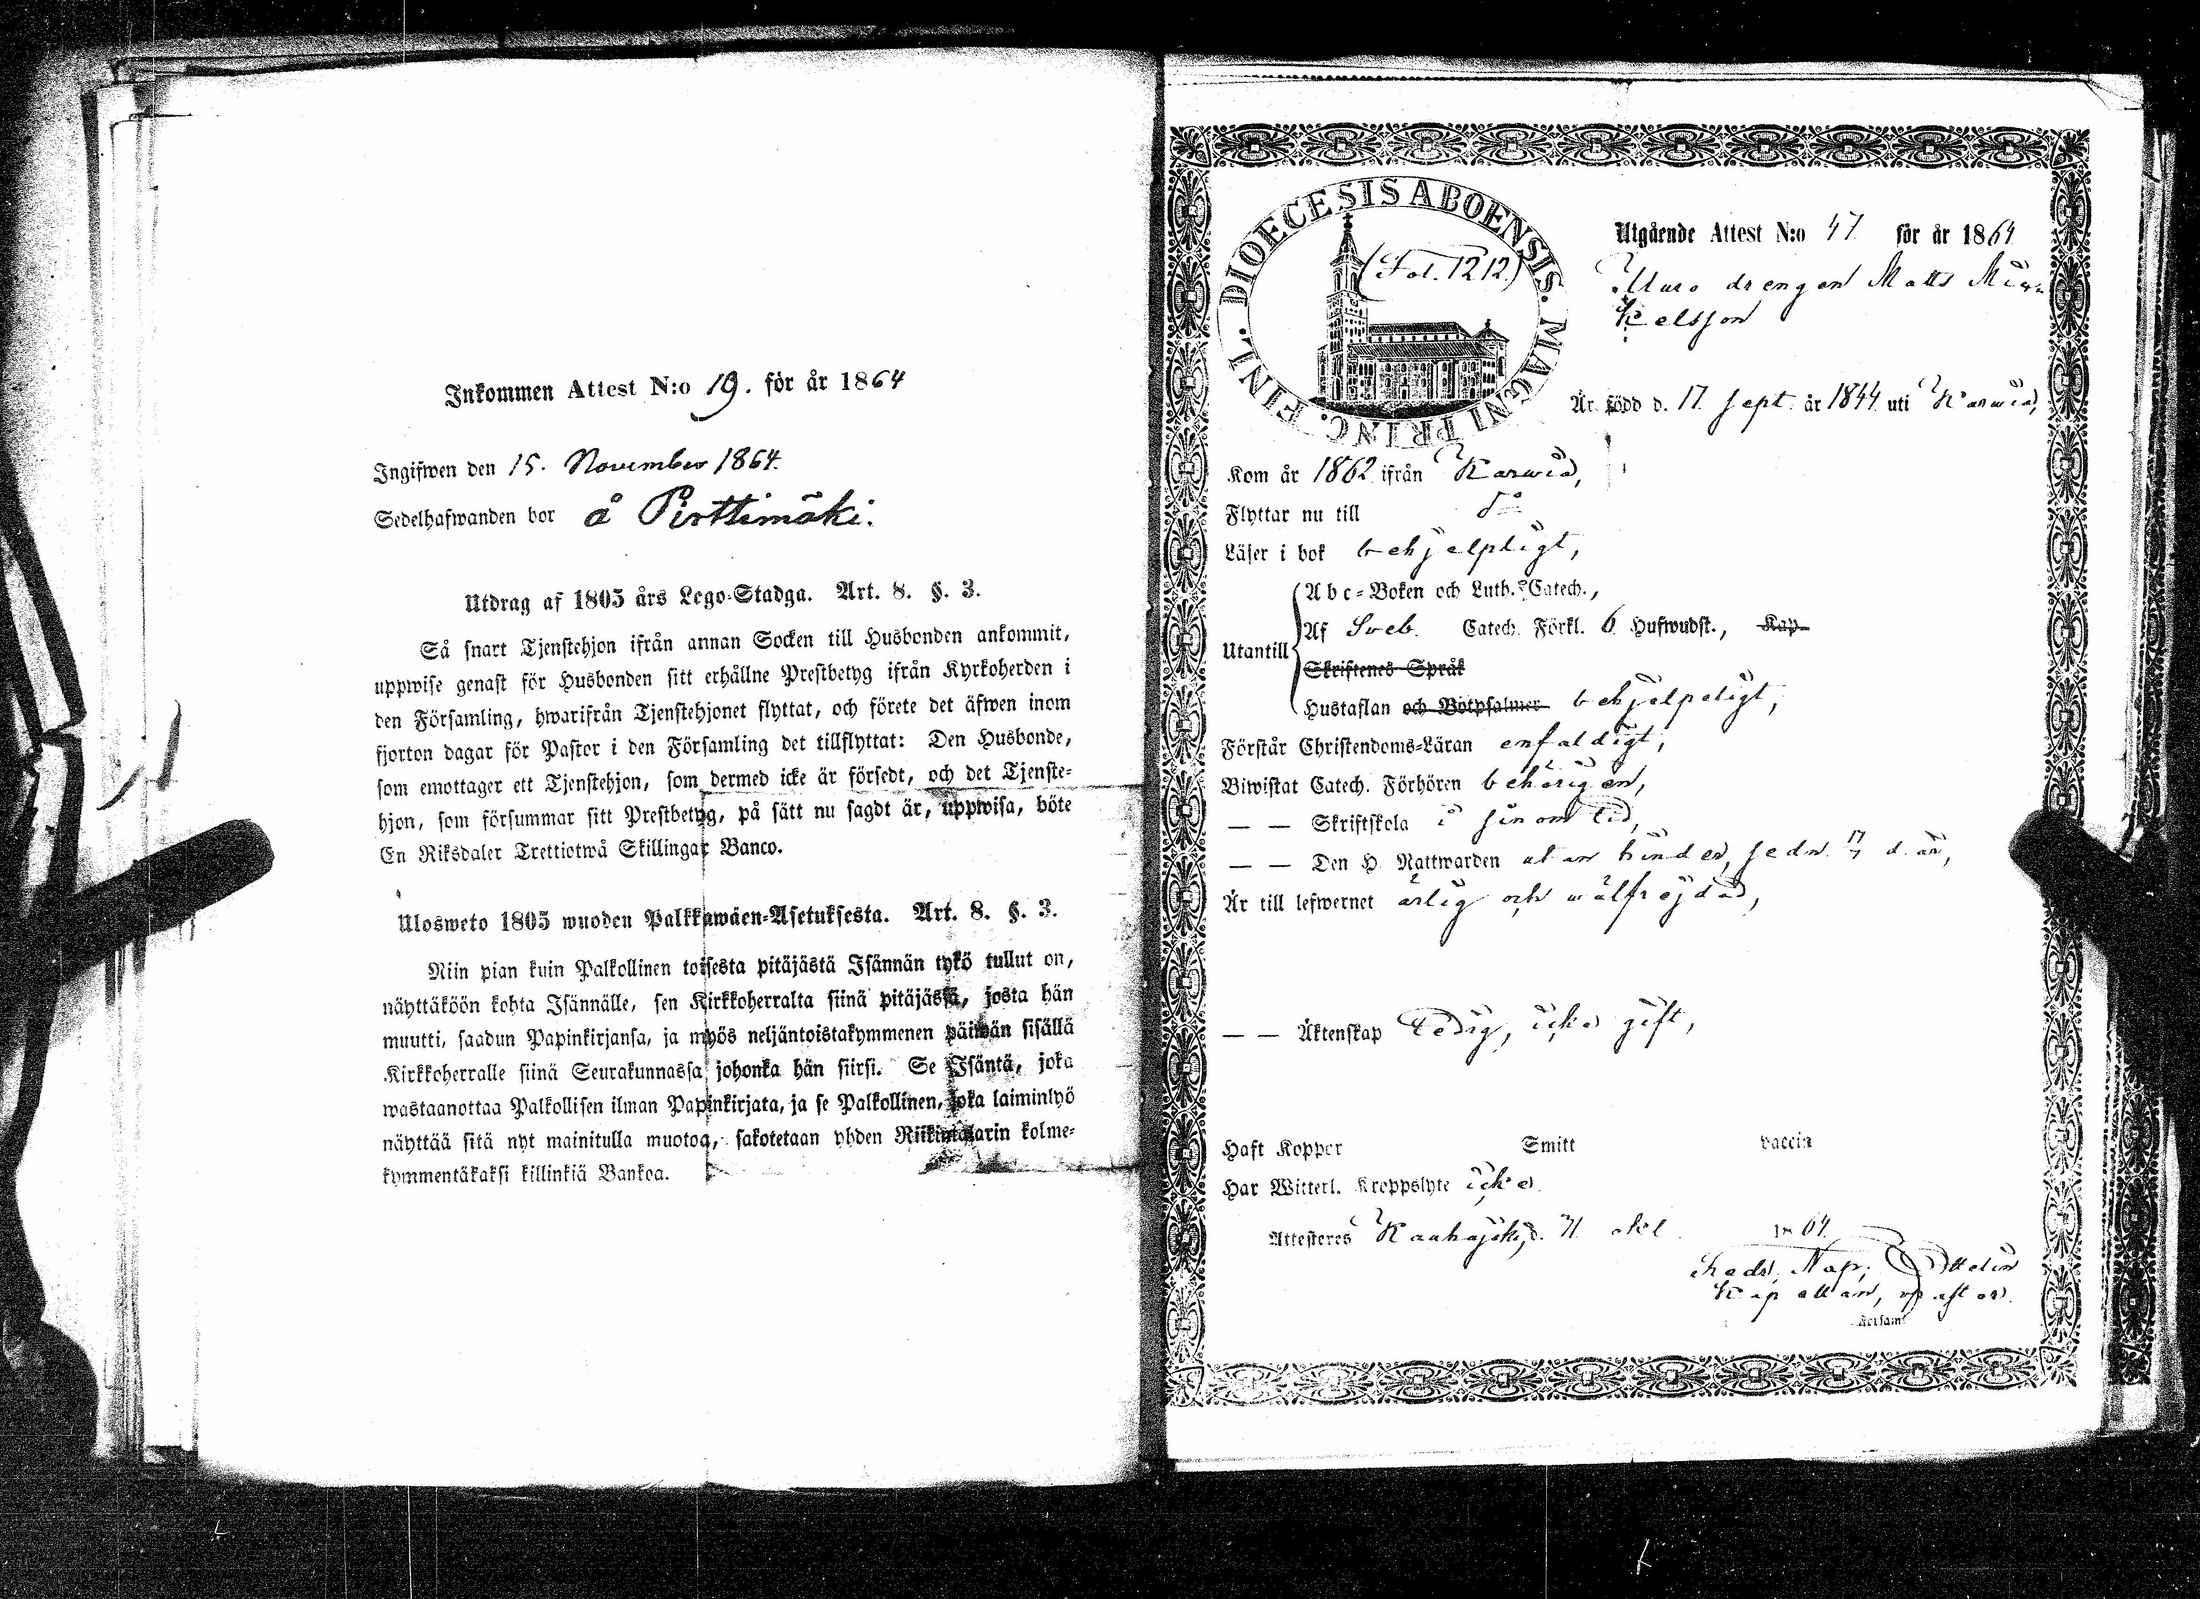 Inkommen Attest N:o 19. för år 1864
Ingifwen den 15. November 1864.
Sedelhafwanden bor å Pirttimäki.
Utdrag af 1805 års Lego-Stadga. Art. 8. §. 3.
Så snart Tjenstehjon ifrån annan Socken till Husbonden ankommit,
uppwise genast för Husbonden sitt erhållne Prestbetyg ifrån Kyrkoherden i
den Församling, hwarifrån Tjenstehjonet flyttat, och förete det äfwen inom
fjorton dagar för Pastor i den Församling det tillflyttat: Den Husbonde,
som emottager ett Tjenstehjon, som dermed icke är försedt, och det Tjenste-
hjon, som försummar sitt Prestbetyg, på sätt nu sagdt är, uppwisa, böte
En Riksdaler Trettiotwå Skillingar Banco.
Ulosweto 1805 wuoden Palkkawäen-Asetuksesta. Art. 8. §. 3.
Niin pian kuin Palkollinen toisesta pitäjästä Isännän tykö tullut on,
näyttäköön kohta Isännälle, sen Kirkkoherralta siinä pitäjässä, josta hän
muutti, saadun Papinkirjansa, ja myös neljäntoistakymmenen päiwän sisällä
Kirkkoherralle siinä Seurakunnassa johonka hän siirsi. Se Isäntä, joka
wastaanottaa Palkollisen ilman Papinkirjata, ja se Palkollinen, joka laiminlyö
näyttää sitä nyt mainitulla muotoa, sakotetaan yhden Riikintalarin kolme-
kymmentäkaksi killinkiä Bankoa.
DIOECESIS ABOENSIS. MAGNI PRINC. FINL.
(Fol. 1212.)
Utgående Attest N:o 47 för år 1864
drengen Matts Mi
kelsson
Är född d. 17 Sept. år 1844 uti Karwia,
Kom år 1862 ifrån Karwia,
Flyttar nu till d:o
Läser i bok behjelpligt,
Utantill
Abc-Boken och Luth. Catech.,
Af Sveb. Catech. Förkl. 6 Hufwudst., Kap.
Skriftenes Språk
Hustaflan och Botpsalmer behjelpeligt,
Förstår Christendoms-Läran enfaldigt,
Biwistat Catech. Förhören behörigen,
— — Skriftskola i sinom tid,
— — Den H. Nattwarden utan hinder, sedn. 17/7 d. år,
Är till lefwernet ärlig och wälfrejdad,
— — Äktenskap ledig, icke gift,
Haft Koppor Smitt vaccin
Har Witterl. Kroppslyte icke
Attesteras Kauhajoki, d. okt 1864.
Kapellan,